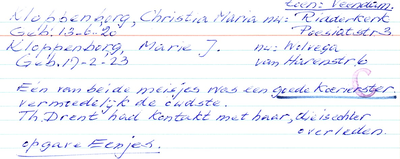 Leen: Veendam.
Kloppenborg, Christina Maria nu: Ridderkerk
Geb. 13-6-20 Poesiatstr 3.
Kloppenborg, Marie J. nu: Wolvega
Geb. 17-2-23 van Harenstr 6
Eén van beide meisjes was een goede Koerierster.
vermoedelijk de oudste.
Th. Drent had kontakt met haar, die is echter
overleden.
opgave Eenjes.